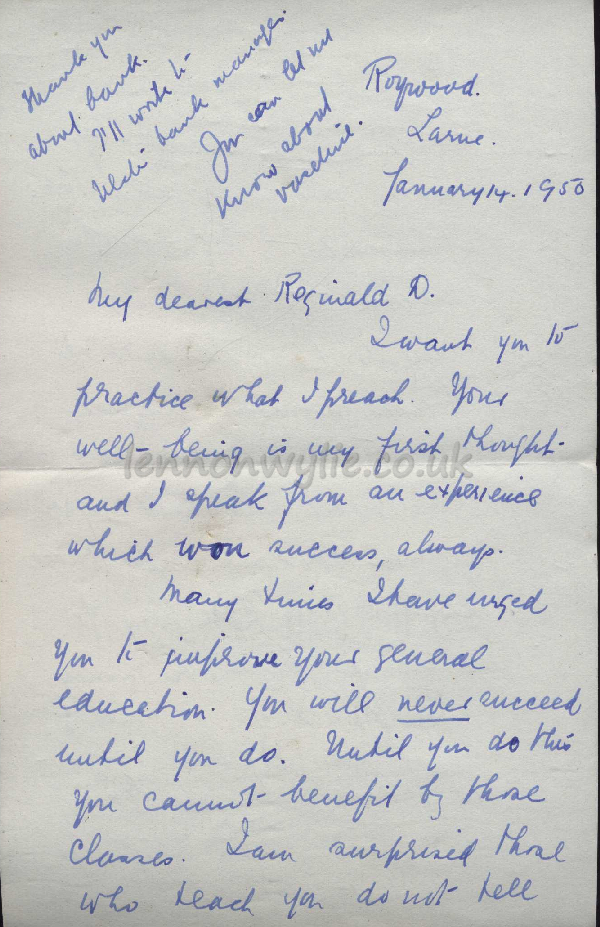 Thank you
about bank.
I'll write to
Ulster bank manager.
You can let me
know about
vaseline.
Roywood.
Larne.
January 14. 1950
My dearest Reginald D.
I want you to
practice what I preach. Your
well-being is my first thought-
lennonwylie.co.uk
and I speak from an experience
which won success, always.
Many times I have urged
you to improve your general
education. You will never succeed
until you do. Until you do this
you cannot benefit by those
classes. I am surprised those
who teach you do not tell